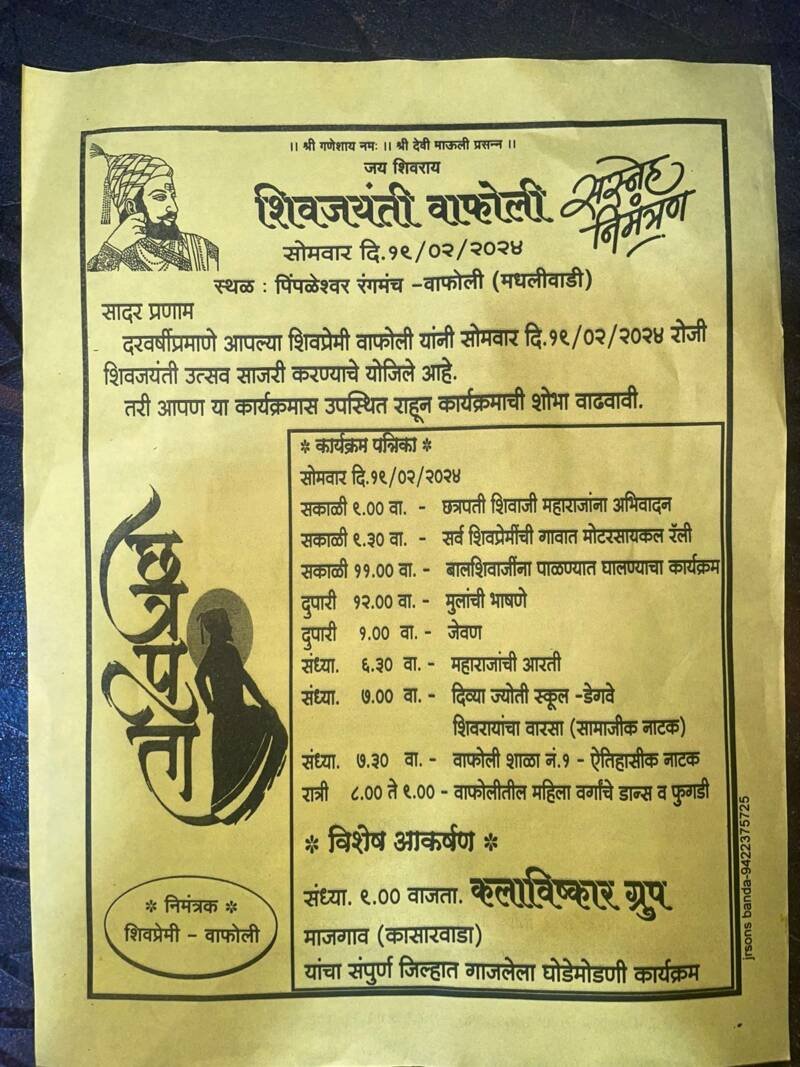 ।। श्री गणेशाय नमः ।। श्री देवी माऊली प्रसन्न ।।
जय शिवराय
शिवजयंती वाफोली
सस्नेह
निमंत्रण
सोमवार दि.१९/०२/२०२४
स्थळ : पिंपळेश्वर रंगमंच -वाफोली (मधलीवाडी)
सादर प्रणाम
दरवर्षीप्रमाणे आपल्या शिवप्रेमी वाफोली यांनी सोमवार दि.१९/०२/२०२४ रोजी
शिवजयंती उत्सव साजरी करण्याचे योजिले आहे.
तरी आपण या कार्यक्रमास उपस्थित राहून कार्यक्रमाची शोभा वाढवावी.
* कार्यक्रम पत्रिका *
सोमवार दि.१९/०२/२०२४
सकाळी ९.00 वा. - छत्रपती शिवाजी महाराजांना अभिवादन
सकाळी ९.३0 वा. - सर्व शिवप्रेमींची गावात मोटरसायकल रॅली
सकाळी ११.00 वा. - बालशिवाजींना पाळण्यात घालण्याचा कार्यक्रम
दुपारी १२.00 वा. - मुलांची भाषणे
दुपारी १.00 वा. - जेवण
संध्या. ६.३0 वा. - महाराजांची आरती
संध्या. ७.00 वा. - दिव्या ज्योती स्कूल -डेगवे
शिवरायांचा वारसा (सामाजीक नाटक)
संध्या. ७.३0 वा. - वाफोली शाळा नं.१ - ऐतिहासीक नाटक
रात्री ८.00 ते ९.00 - वाफोलीतील महिला वर्गांचे डान्स व फुगडी
* विशेष आकर्षण *
संध्या. ९.00 वाजता. कलाविष्कार ग्रुप
माजगाव (कासारवाडा)
यांचा संपुर्ण जिल्हात गाजलेला घोडेमोडणी कार्यक्रम
छत्रपती
* निमंत्रक *
शिवप्रेमी - वाफोली
jrsons banda-9422375725